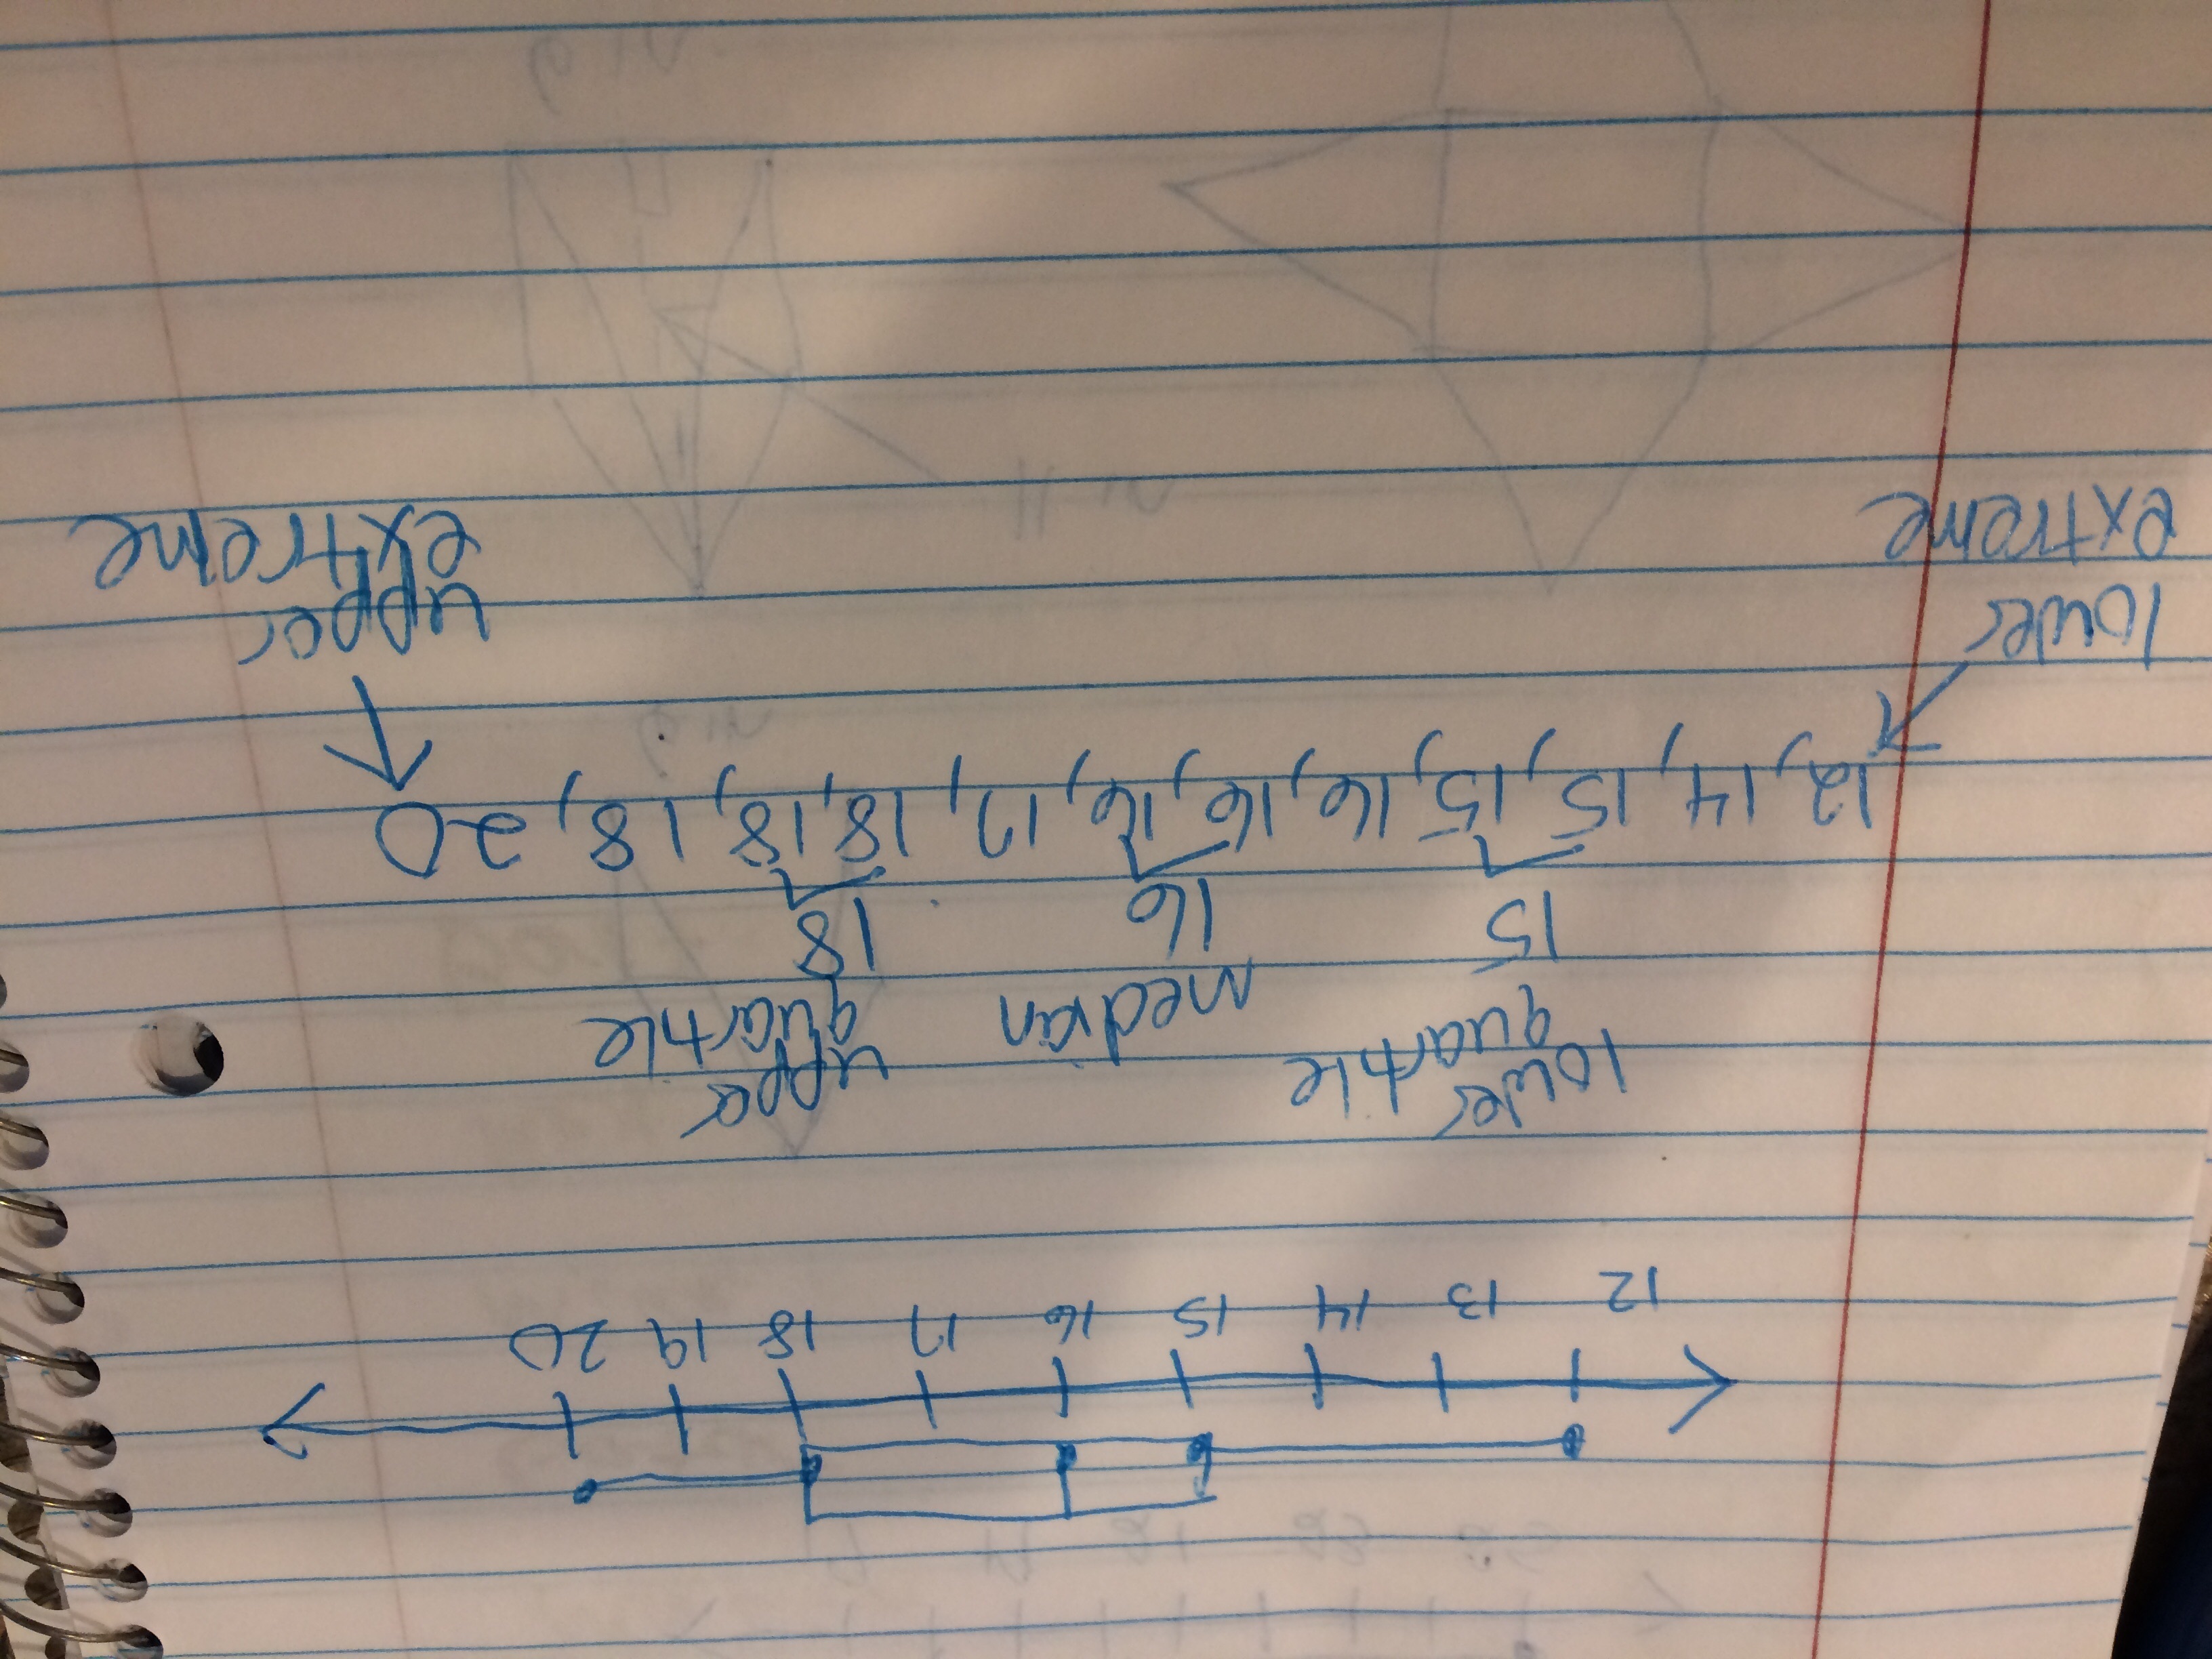 12 13 14 15 16 17 18 19 20
lower upper
quartile median quartile
15 16 18
12, 14, 15, 15, 16, 16, 16, 17, 18, 18, 18, 20
lower upper
extreme extreme